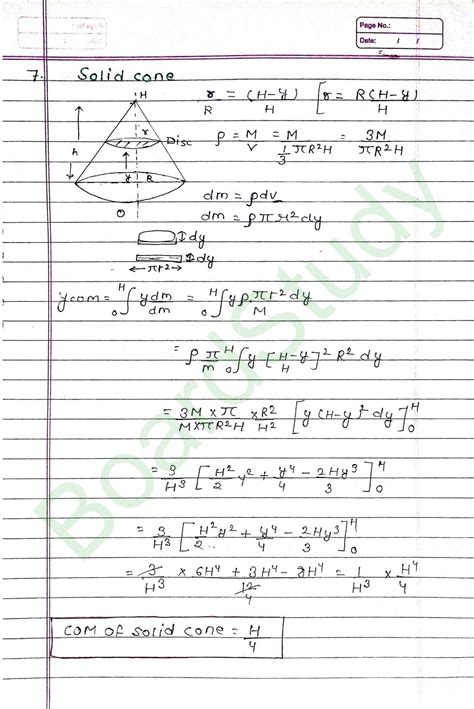 Page No.:
Date: / /
7. Solid cone
H
r/R = (H-y)/H [r = R(H-y)/H
r
Disc
h
ρ = M/V = M/(1/3 πR²H) = 3M/πR²H
y R
O
dm = ρdv
dm = ρπr²dy
dy
dy
πr²
ycom = ₀ᴴ∫ ydm/dm = ₀ᴴ∫ yρπr²dy/M
= ρ π/m ₀ᴴ∫ y [H-y/H]² R² dy
= 3M×π/M×πR²H × R²/H² [y(H-y)² dy]₀ᴴ
= 3/H³ [H²/2 y² + y⁴/4 - 2Hy³/3]₀ᴴ
= 3/H³ [H²y²/2.. + y⁴/4 - 2Hy³/3]₀ᴴ
= 3/H³ × 6H⁴ + 3H⁴ - 8H⁴/12 4 = 1/H³ × H⁴/4
COM of solid cone = H/4
BoardStudy